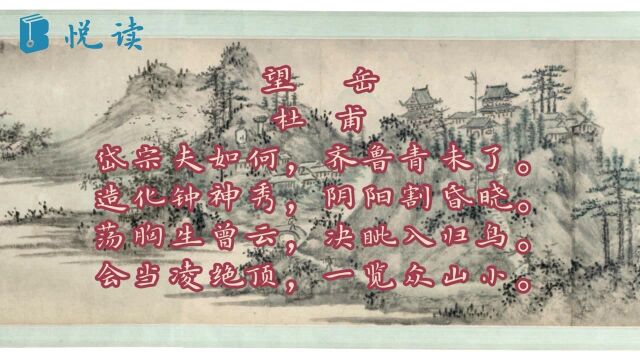 悦读
望 岳
杜 甫
岱宗夫如何，齐鲁青未了。
造化钟神秀，阴阳割昏晓。
荡胸生曾云，决眦入归鸟。
会当凌绝顶，一览众山小。